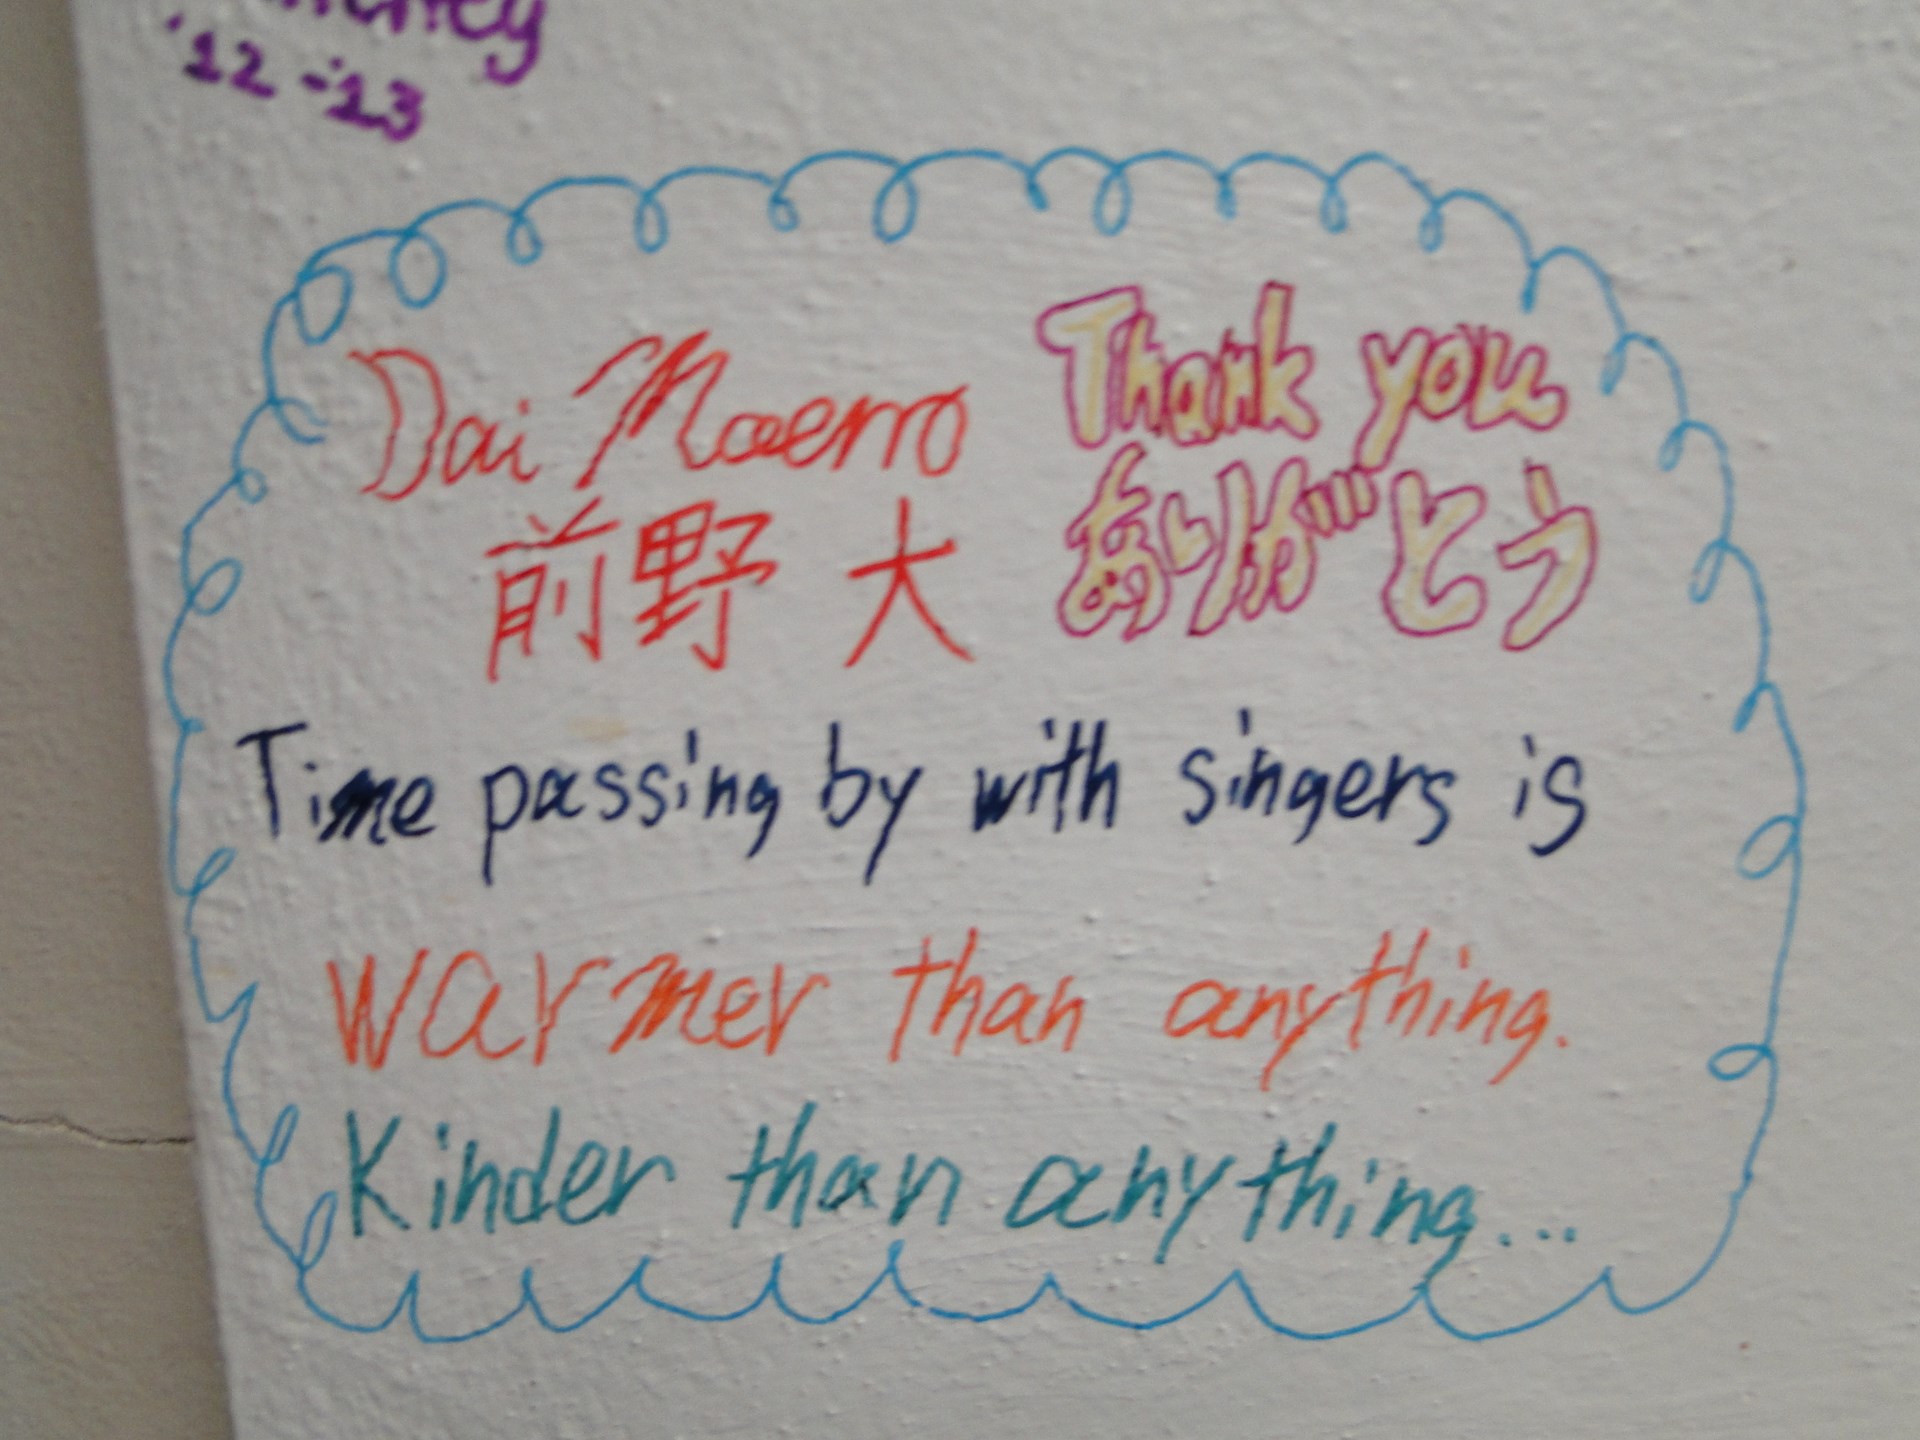 '12 - '13
Dai Maeno
前野 大
Thank you
ありがとう
Time passing by with singers is
warmer than anything.
Kinder than anything...